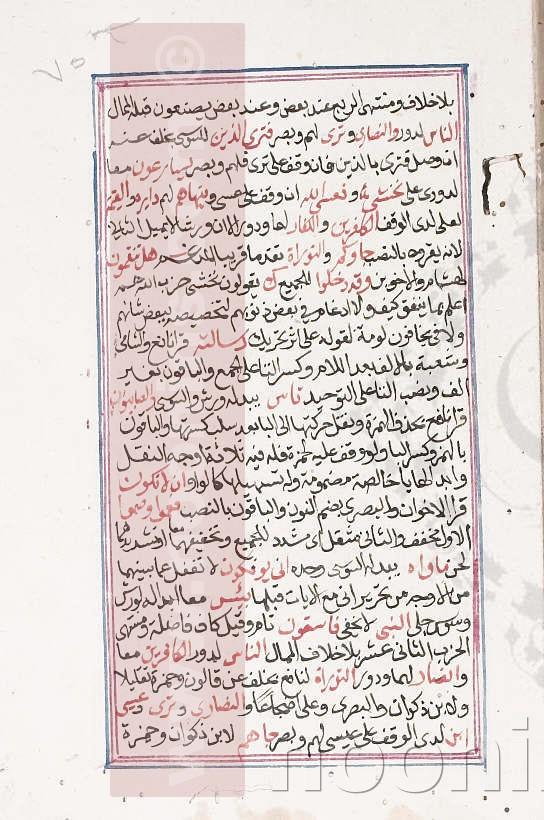 بلا خلاف ومنتهى الربع عند بعض وعند بعض يصنعون قبله الممال
الناس لدور والنصارى وترى لهم وبصر فترى الذين للسوسي بخلف عنه
ان وصل فترى بالذين فان وقف على ترى فلهم وبصر يسارعون معا
لدوري على نخشى ان وقف على عسى وينهاهم لهم
لعلى لدى الوقف الكافرين والكفار لهما ودور
لانه يقرؤه بالنصب جاؤكم والتوراة تقدما قريبا المدغم هل تنقمون
لهشام والاخوين وقد دخلوا للجميع ك يقولون نخشى حزب الله هم
اعلم بما ينفق كيف ولا ادغام في بعض ذنوبهم لتخصيصه ببعض شأنهم
ولا في يخافون لومة لقوله على اثر تحريك رسالته قرا نافع والشامي
وشعبة بالالف بعد اللام وكسر التا على الجمع والباقون بغير
الف ونصب التا على التوحيد تاس يبدله ورش والسوسي والصابئون
قرا نافع بحذف الهمزة ونقل حركتها الى البا بعد سلب كسرتها والباقون
بالهمز وكسر البا ولو وقف عليه لحمزة فله فيه ثلاثة اوجه النقل
وابدالها يا خالصة مضمومة وله تسهيلها كالواو ان لا تكون
قرا الاخوان والبصري بضم النون والباقون بالنصب فعموا وصموا
الاول مخفف والثاني مثقل اي مشدد للجميع وتخفيفهما او تشديدهما
لحن ماواه يبدله السوسي وحده انى يوفكون لا تغفل عما بينهما
من الاوجه من تحرير انى مع الايات قبلها لبئس معا ابداله لورش
وسوس جلي النبي لا يخفى فاسقون تام وقيل كاف فاصلة ومنتهى
الحزب الثاني عشر بلا خلاف الممال الناس لدور الكافرين معا
وانصار لهما ودور التوراة لنافع بخلف عن قالون وحمزة تقليلا
ولابن ذكوان والبصري وعلي اضجاعا والنصارى وترى وعيسى
ابن لدى الوقف على عيسى لهم وبصر جاهم لابن ذكوان وحمزة